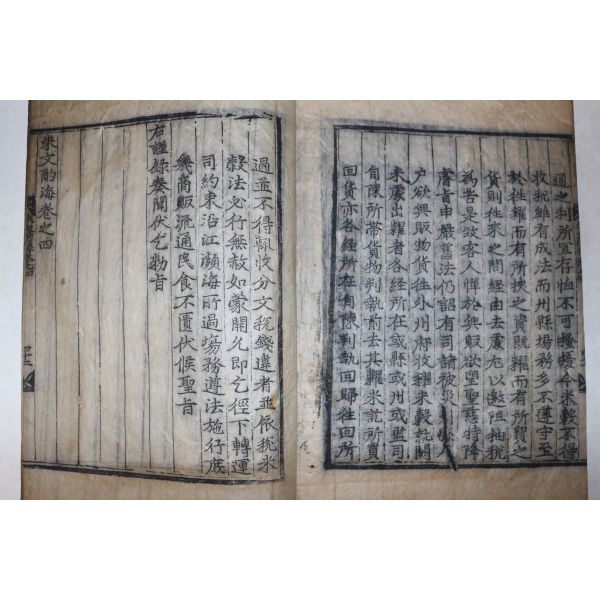 通之利所宜存恤不可搔擾今米穀不得
收稅雖有成法而州縣場務多不遵守至
於往糴而有所挾之資既糶而有所貿之
貨則往來之間經由去處尤以邀阻抽稅
為苦是故客人憚於興販欲望聖慈特降
睿旨申嚴舊法仍詔有司諸被災人
戶欲興販物貨往外州府收糴米穀就闕
米處出糶者各經所在或縣或州或監司
自陳所帶貨物判執前去其糶米訖所買
回貨亦各經所在自陳判執回歸往回所
過並不得輒收分文稅錢違者並依稅米
穀法必行無赦如蒙開允即乞徑下轉運
司約束沿江瀕海所過場務遵法施行庶
幾商販流通民食不匱伏候聖旨
右謹錄奏聞伏乞勑旨
朱文酌海卷之四